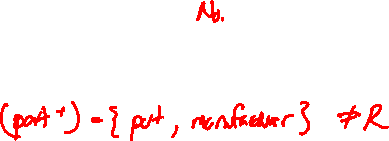 No.
(part +) = { part, manufacturer } ≠ R